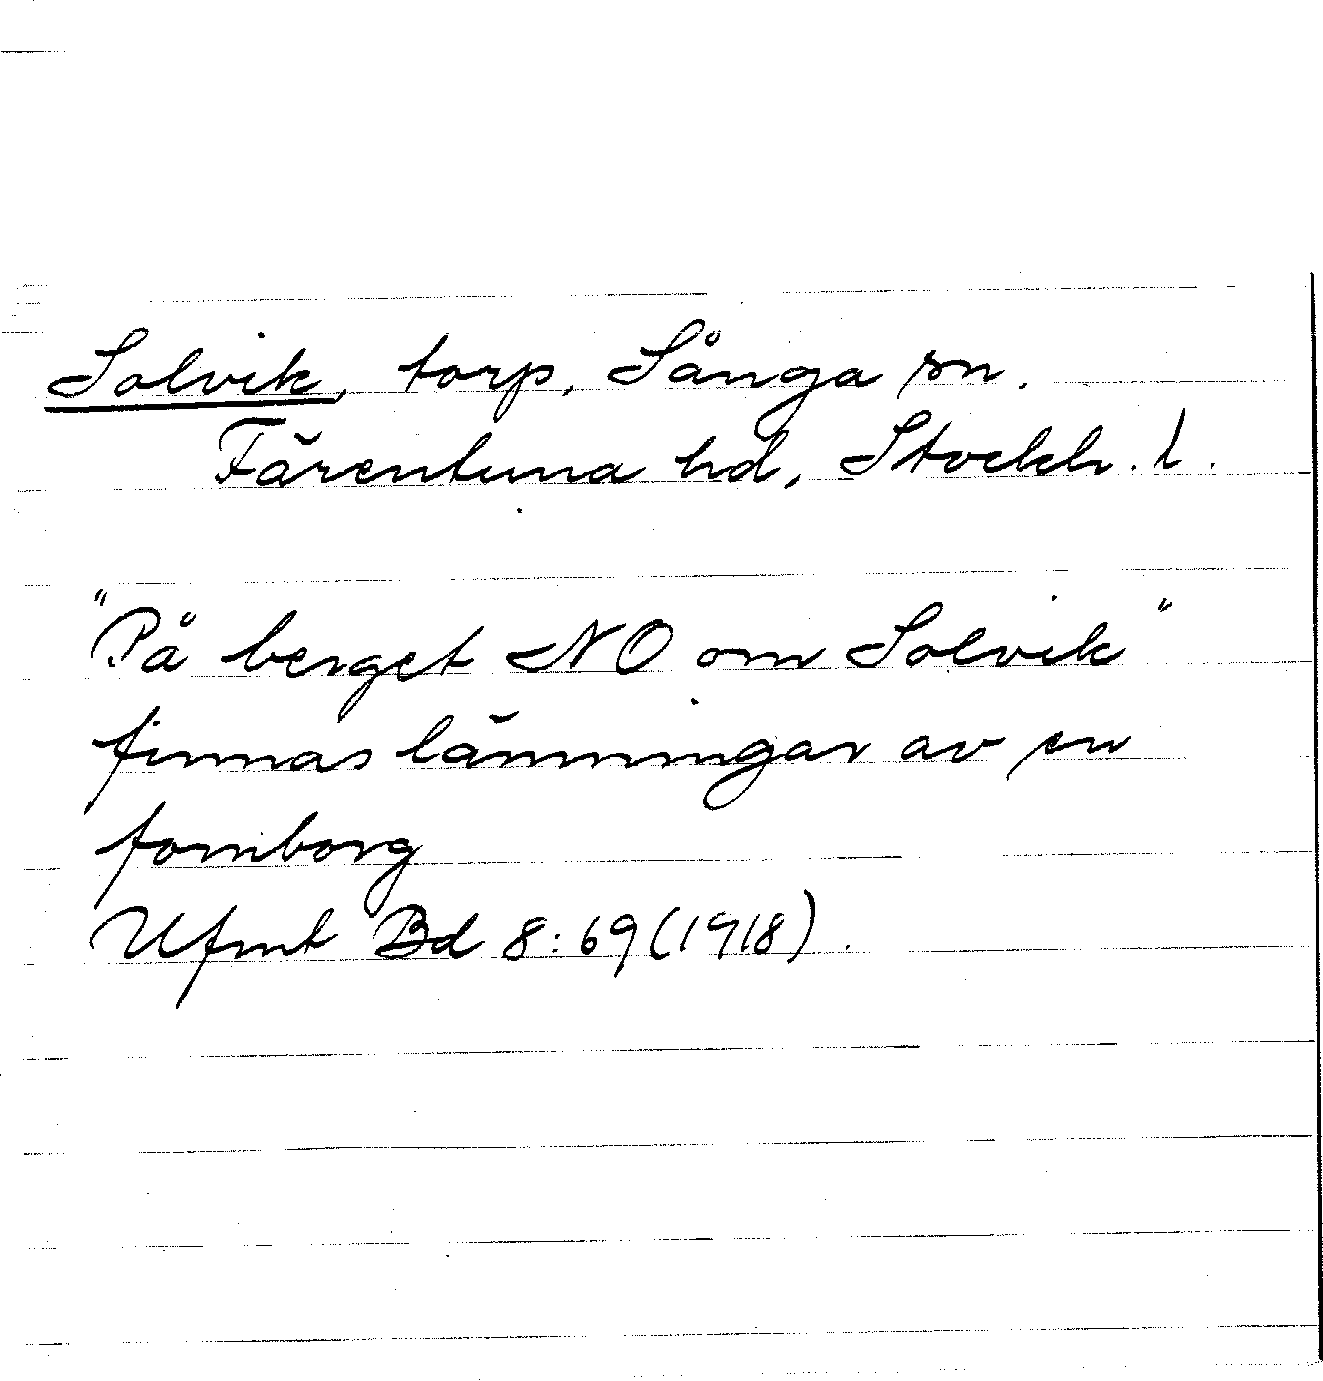 Solvik, torp, Sånga sn.
Färentuna hd, Stockh. l.
"På berget NO om Solvik"
finnas lämningar av en
fornborg
Ufmt Bd 8:69(1918).